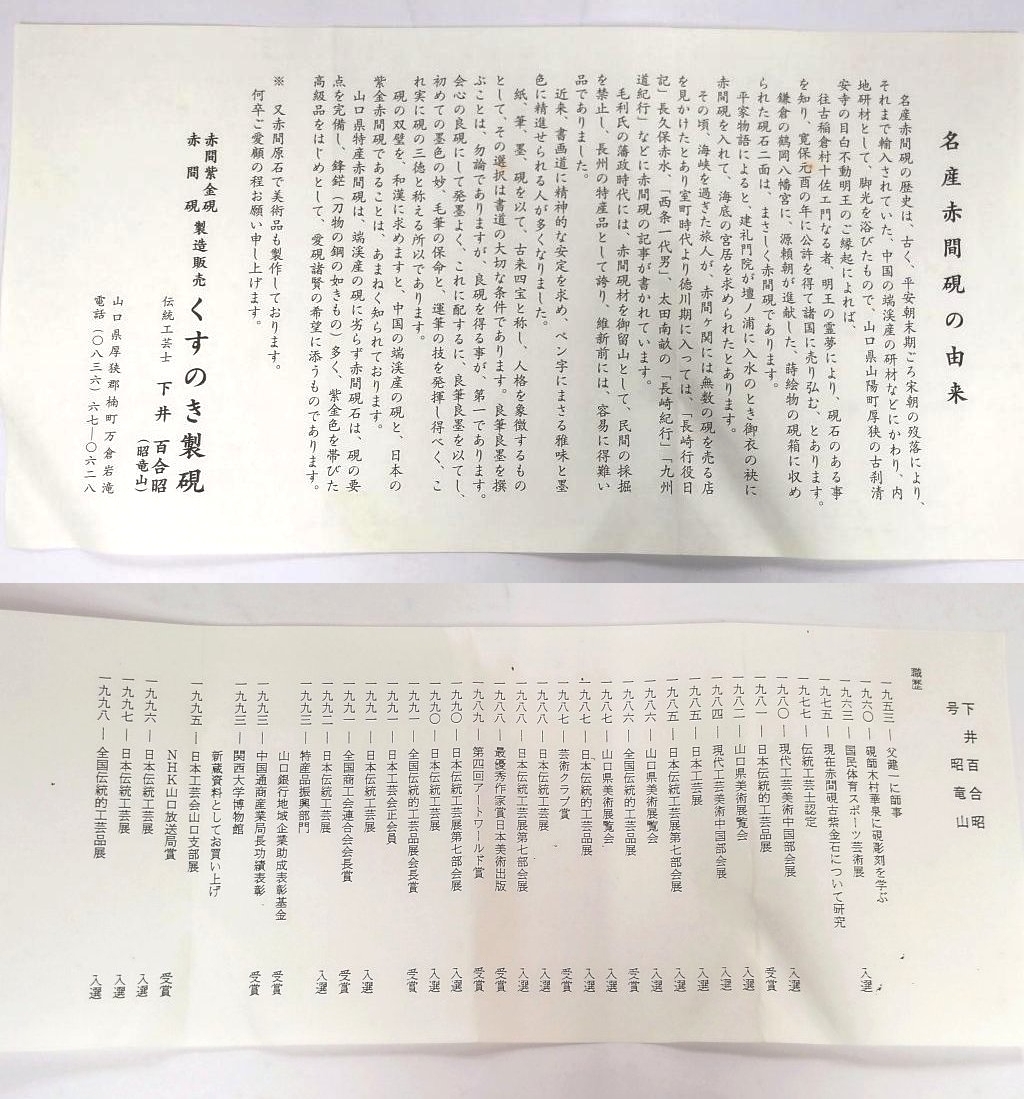 名産赤間硯の由来
名産赤間硯の歴史は、古く、平安朝末期ごろ宋朝の歿落により、
それまで輸入されていた、中国の端渓産の研材などにかわり、内
地研材として、脚光を浴びたもので、山口県山陽町厚狭の古刹清
安寺の目白不動明王のご縁起によれば、
往古稲倉村十佐エ門なる者、明王の霊夢により、硯石のある事
を知り、寛保元酉の年に公許を得て諸国に売り弘む、とあります。
鎌倉の鶴岡八幡宮に、源頼朝が進献した、蒔絵物の硯箱に収め
られた硯石二面は、まさしく赤間硯であります。
平家物語によると、建礼門院が壇ノ浦に入水のとき御衣の袂に
赤間硯を入れて、海底の宮居を求められたとあります。
その頃、海峡を過ぎた旅人が、赤間ヶ関には無数の硯を売る店
を見かけたとあり室町時代より徳川期に入っては、「長崎行役日
記」長久保赤水、「西条一代男」、太田南畝の「長崎紀行」「九州
道紀行」などに赤間硯の記事が書かれています。
毛利氏の藩政時代には、赤間硯材を御留山として、民間の採掘
を禁止し、長州の特産品として誇り、維新前には、容易に得難い
品でありました。
近来、書画道に精神的な安定を求め、ペン字にまさる雅味と墨
色に精進せられる人が多くなりました。
紙、筆、墨、硯を以て、古来四宝と称し、人格を象徴するもの
として、その選択は書道の大切な条件であります。良筆良墨を撰
ぶことは、勿論でありますが、良硯を得る事が、第一であります。
会心の良硯にして発墨よく、これに配するに、良筆良墨を以てし、
初めての墨色の妙、毛筆の保命と、運筆の技を発揮し得べく、こ
れ実に硯の三徳と称える所以であります。
硯の双璧を、和漢に求めますと、中国の端渓産の硯と、日本の
紫金赤間硯であることは、あまねく知られております。
山口県特産赤間硯は、端渓産の硯に劣らず赤間硯石は、硯の要
点を完備し、鋒鋩(刀物の鋼の如きもの)多く、紫金色を帯びた
高級品をはじめとして、愛硯諸賢の希望に添うものであります。
※ 又赤間原石で美術品も製作しております。
何卒ご愛願の程お願い申し上げます。
赤間紫金硯
赤間硯 製造販売 くすのき製硯
伝統工芸士 下井百合昭
(昭竜山)
山口県厚狭郡楠町万倉岩滝
電話(〇八三六)六七―〇六二八
下井百合昭
号 昭竜山
職歴
一九五三 ― 父建一に師事
一九六〇 ― 硯師木村華泉に硯彫刻を学ぶ
一九六三 ― 国民体育スポーツ芸術展 入選
一九七五 ― 現在赤間硯古紫金石について研究
一九七七 ― 伝統工芸士認定
一九八〇 ― 現代工芸美術中国部会展 入選
一九八一 ― 日本伝統的工芸品展 受賞
一九八二 ― 山口県美術展覧会 入選
一九八四 ― 現代工芸美術中国部会展 入選
一九八五 ― 日本工芸展 入選
一九八五 ― 日本伝統工芸展第七部会展 入選
一九八六 ― 山口県美術展覧会 入選
一九八六 ― 全国伝統的工芸品展 入選
一九八七 ― 山口県美術展覧会 入選
一九八七 ― 日本伝統的工芸品展 入選
一九八七 ― 芸術クラブ賞 受賞
一九八八 ― 日本伝統工芸展第七部会展 入選
一九八八 ― 日本伝統工芸展第七部会展 入選
一九八八 ― 最優秀作家賞日本美術出版 受賞
一九八九 ― 第四回アートワールド賞 受賞
一九九〇 ― 日本伝統工芸展第七部会展 入選
一九九〇 ― 日本伝統工芸展 入選
一九九一 ― 全国伝統的工芸品展会長賞 受賞
一九九一 ― 日本工芸会正会員
一九九一 ― 日本伝統工芸展 入選
一九九一 ― 全国商工会連合会会長賞 受賞
一九九二 ― 日本伝統工芸展 入選
一九九三 ― 特産品振興部門
山口銀行地域企業助成表彰基金 受賞
一九九三 ― 中国通商産業局長功績表彰 受賞
一九九三 ― 関西大学博物館
新蔵資料としてお買い上げ
一九九五 ― 日本工芸会山口支部展
NHK山口放送局賞 受賞
一九九六 ― 日本伝統工芸展 入選
一九九七 ― 日本伝統工芸展 入選
一九九八 ― 全国伝統的工芸品展 入選